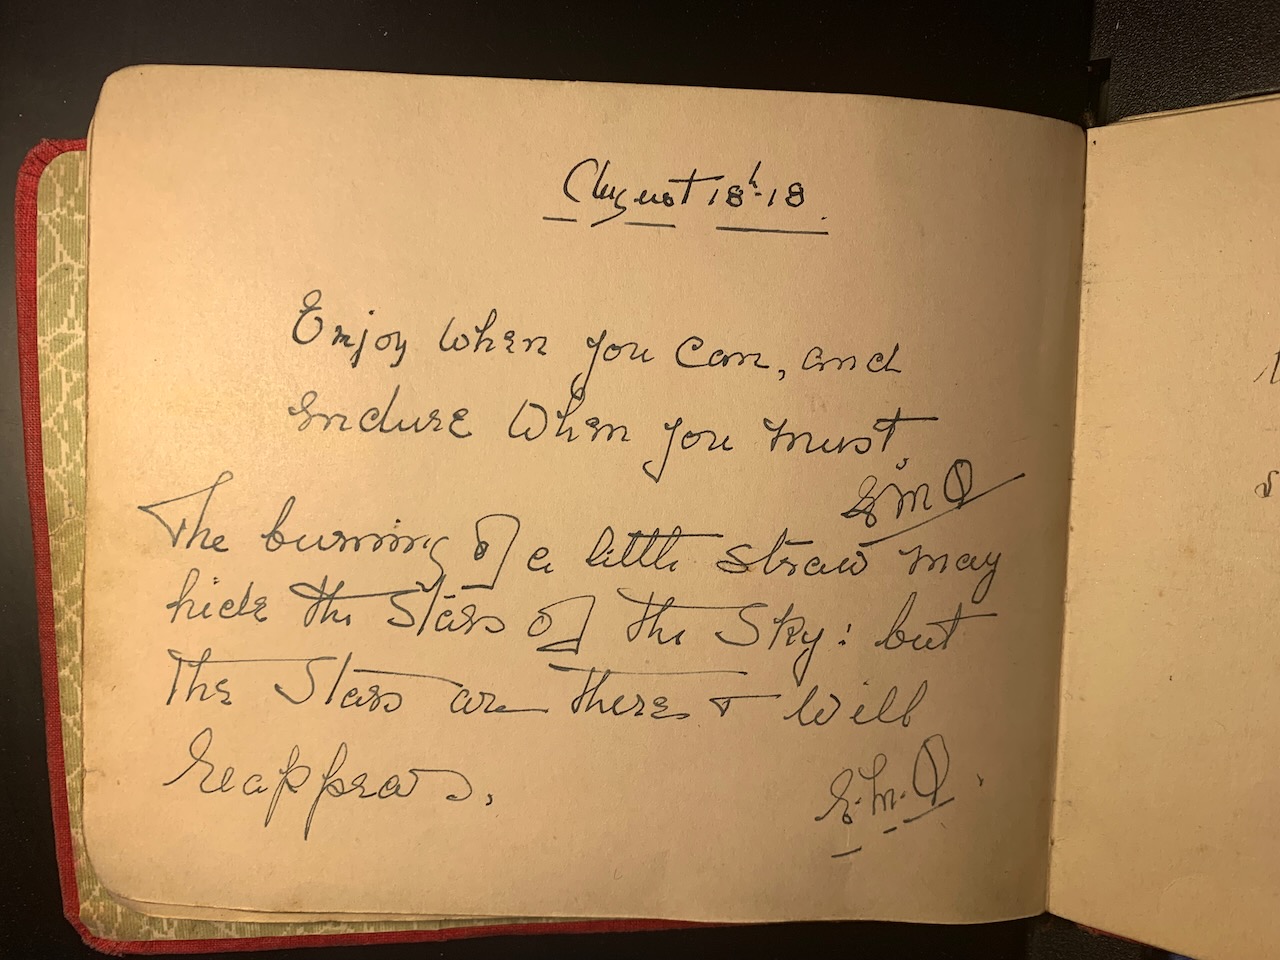 August 18h-18.
Enjoy when you can, and
endure when you must.
E M O
The burning of a little straw may
hide the Stars of the Sky: but
The Stars are there & will
Reappear.
E. M. O.